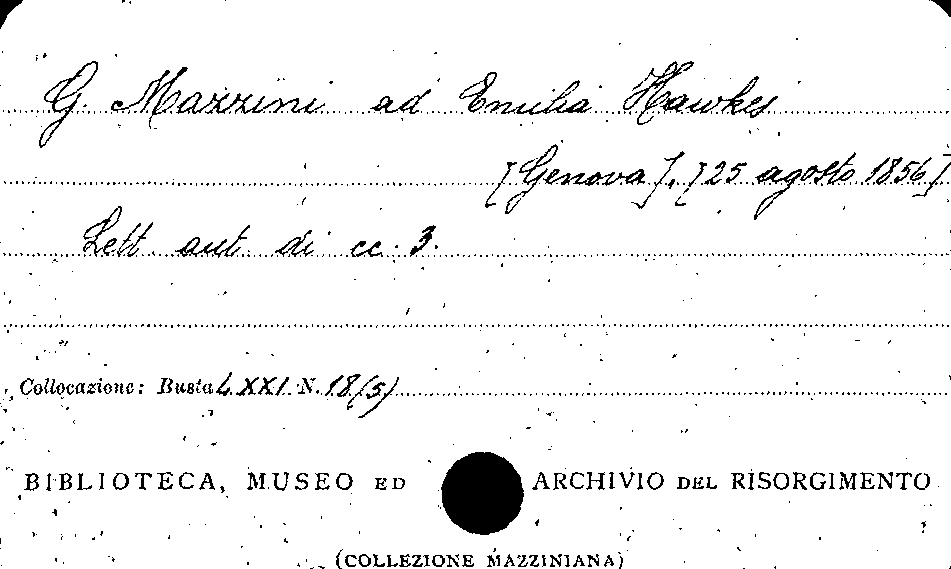 G. Mazzini ad Emilia Hawkes
[Genova], [25 agosto 1856]
Lett. aut. di cc. 3.
Collocazione: Busta LXXI N. 18(5)
BIBLIOTECA, MUSEO ED ARCHIVIO DEL RISORGIMENTO
(COLLEZIONE MAZZINIANA)